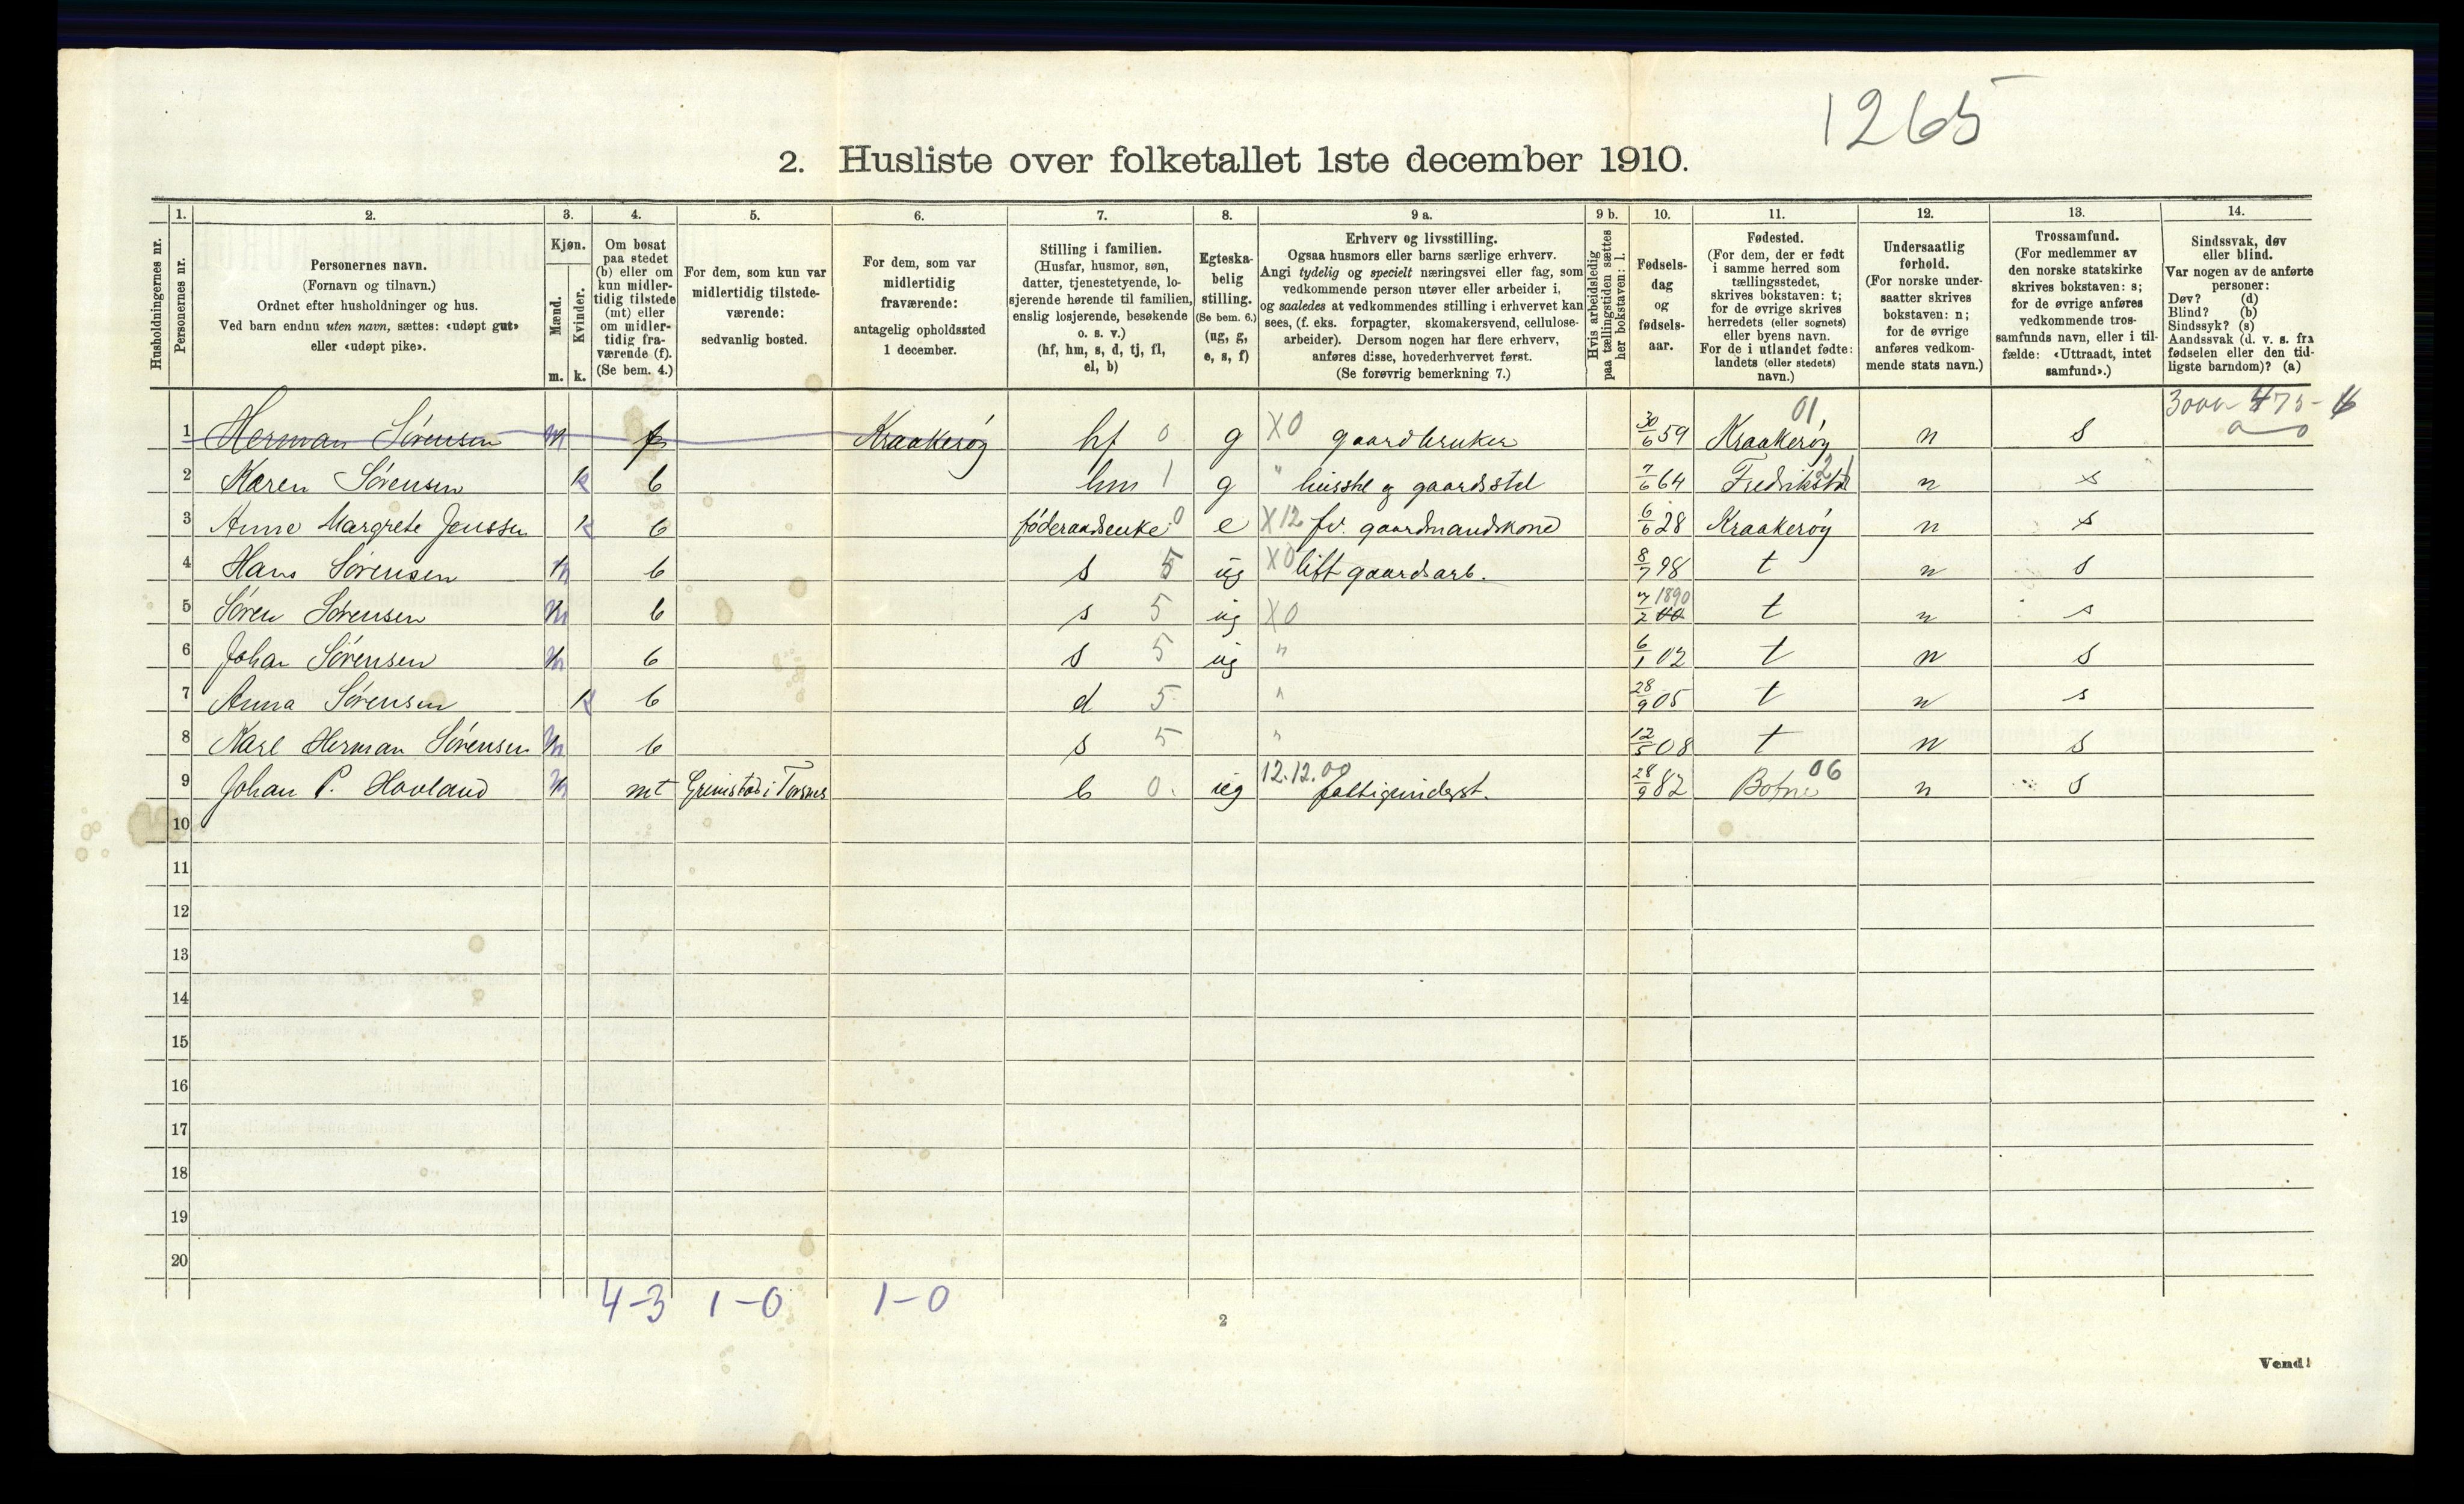 1265
2. Husliste over folketallet 1ste december 1910.
Husholdningernes nr.
1.
Personernes nr.
2.
Personernes navn.
(Fornavn og tilnavn.)
Ordnet efter husholdninger og hus.
Ved barn endnu uten navn, sættes: «udøpt gut»
eller «udøpt pike».
3.
Kjøn.
Mænd.
Kvinder.
m. k.
4.
Om bosat
paa stedet
(b) eller om
kun midler-
tidig tilstede
(mt) eller
om midler-
tidig fra-
værende (f).
(Se bem. 4.)
5.
For dem, som kun var
midlertidig tilstede-
værende:
sedvanlig bosted.
6.
For dem, som var
midlertidig
fraværende:
antagelig opholdssted
1 december.
7.
Stilling i familien.
(Husfar, husmor, søn,
datter, tjenestetyende, lo-
sjerende hørende til familien,
enslig losjerende, besøkende
o. s. v.)
(hf, hm, s, d, tj, fl,
el, b)
8.
Egteska-
belig
stilling.
(Se bem. 6.)
(ug, g,
e, s, f)
9 a.
Erhverv og livsstilling.
Ogsaa husmors eller barns særlige erhverv.
Angi tydelig og specielt næringsvei eller fag, som
vedkommende person utøver eller arbeider i,
og saaledes at vedkommendes stilling i erhvervet kan
sees, (f. eks. forpagter, skomakersvend, cellulose-
arbeider). Dersom nogen har flere erhverv,
anføres disse, hovederhvervet først.
(Se forøvrig bemerkning 7.)
9 b.
Hvis arbeidsledig
paa tællingstiden sættes
her bokstaven: l.
10.
Fødsels-
dag
og
fødsels-
aar.
11.
Fødested.
(For dem, der er født
i samme herred som
tællingsstedet,
skrives bokstaven: t;
for de øvrige skrives
herredets (eller sognets)
eller byens navn.
For de i utlandet fødte:
landets (eller stedets)
navn.)
12.
Undersaatlig
forhold.
(For norske under-
saatter skrives
bokstaven: n;
for de øvrige
anføres vedkom-
mende stats navn.)
13.
Trossamfund.
(For medlemmer av
den norske statskirke
skrives bokstaven: s;
for de øvrige anføres
vedkommende tros-
samfunds navn, eller i til-
fælde: «Uttraadt, intet
samfund».)
14.
Sindssvak, døv
eller blind.
Var nogen av de anførte
personer:
Døv? (d)
Blind? (b)
Sindssyk? (s)
Aandssvak (d. v. s. fra
fødselen eller den tid-
ligste barndom)? (a)
1 Herman Sørensen m f Kraakerøy hf 0 g X0 gaardbruker 30/6 59 01 Kraakerøy n s
2 Karen Sørensen k b hm 1 g " husstel og gaardsstel 7/6 64 Fredrikstad 21 n s
3 Anne Margrete Jenssen k b føderaadsenke 0 e X12 fv. gaardmandskone 6/6 28 Kraakerøy n s
4 Hans Sørensen m b s 5 ug X0 litt gaardsarb. 8/7 98 t n s
5 Søren Sørensen m b s 5 ug X0 7/2 00 1890 t n s
6 Johan Sørensen m b s 5 ug " 6/1 02 t n s
7 Anna Sørensen k b d 5 " 28/9 05 t n s
8 Karl Herman Sørensen m b s 5 " 12/5 08 t n s
9 Johan P. Hovland m mt Grimstad i Torsnes b 0 ug 12.12.00 fattigunderst. 28/9 82 Botne 06 n s
10
11
12
13
14
15
16
17
18
19
20
4-3 1-0 1-0
2
Vend!